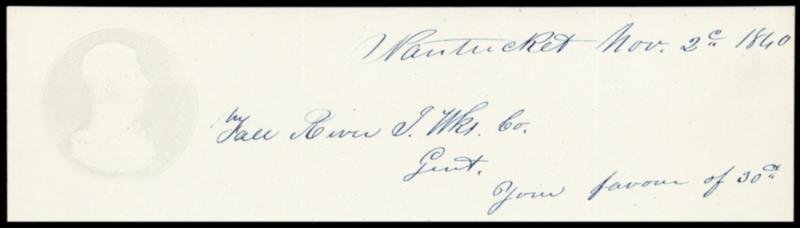 Nantucket Nov. 2d 1840
Fall River I. Wks. Co.
Gent.
Your favour of 30th